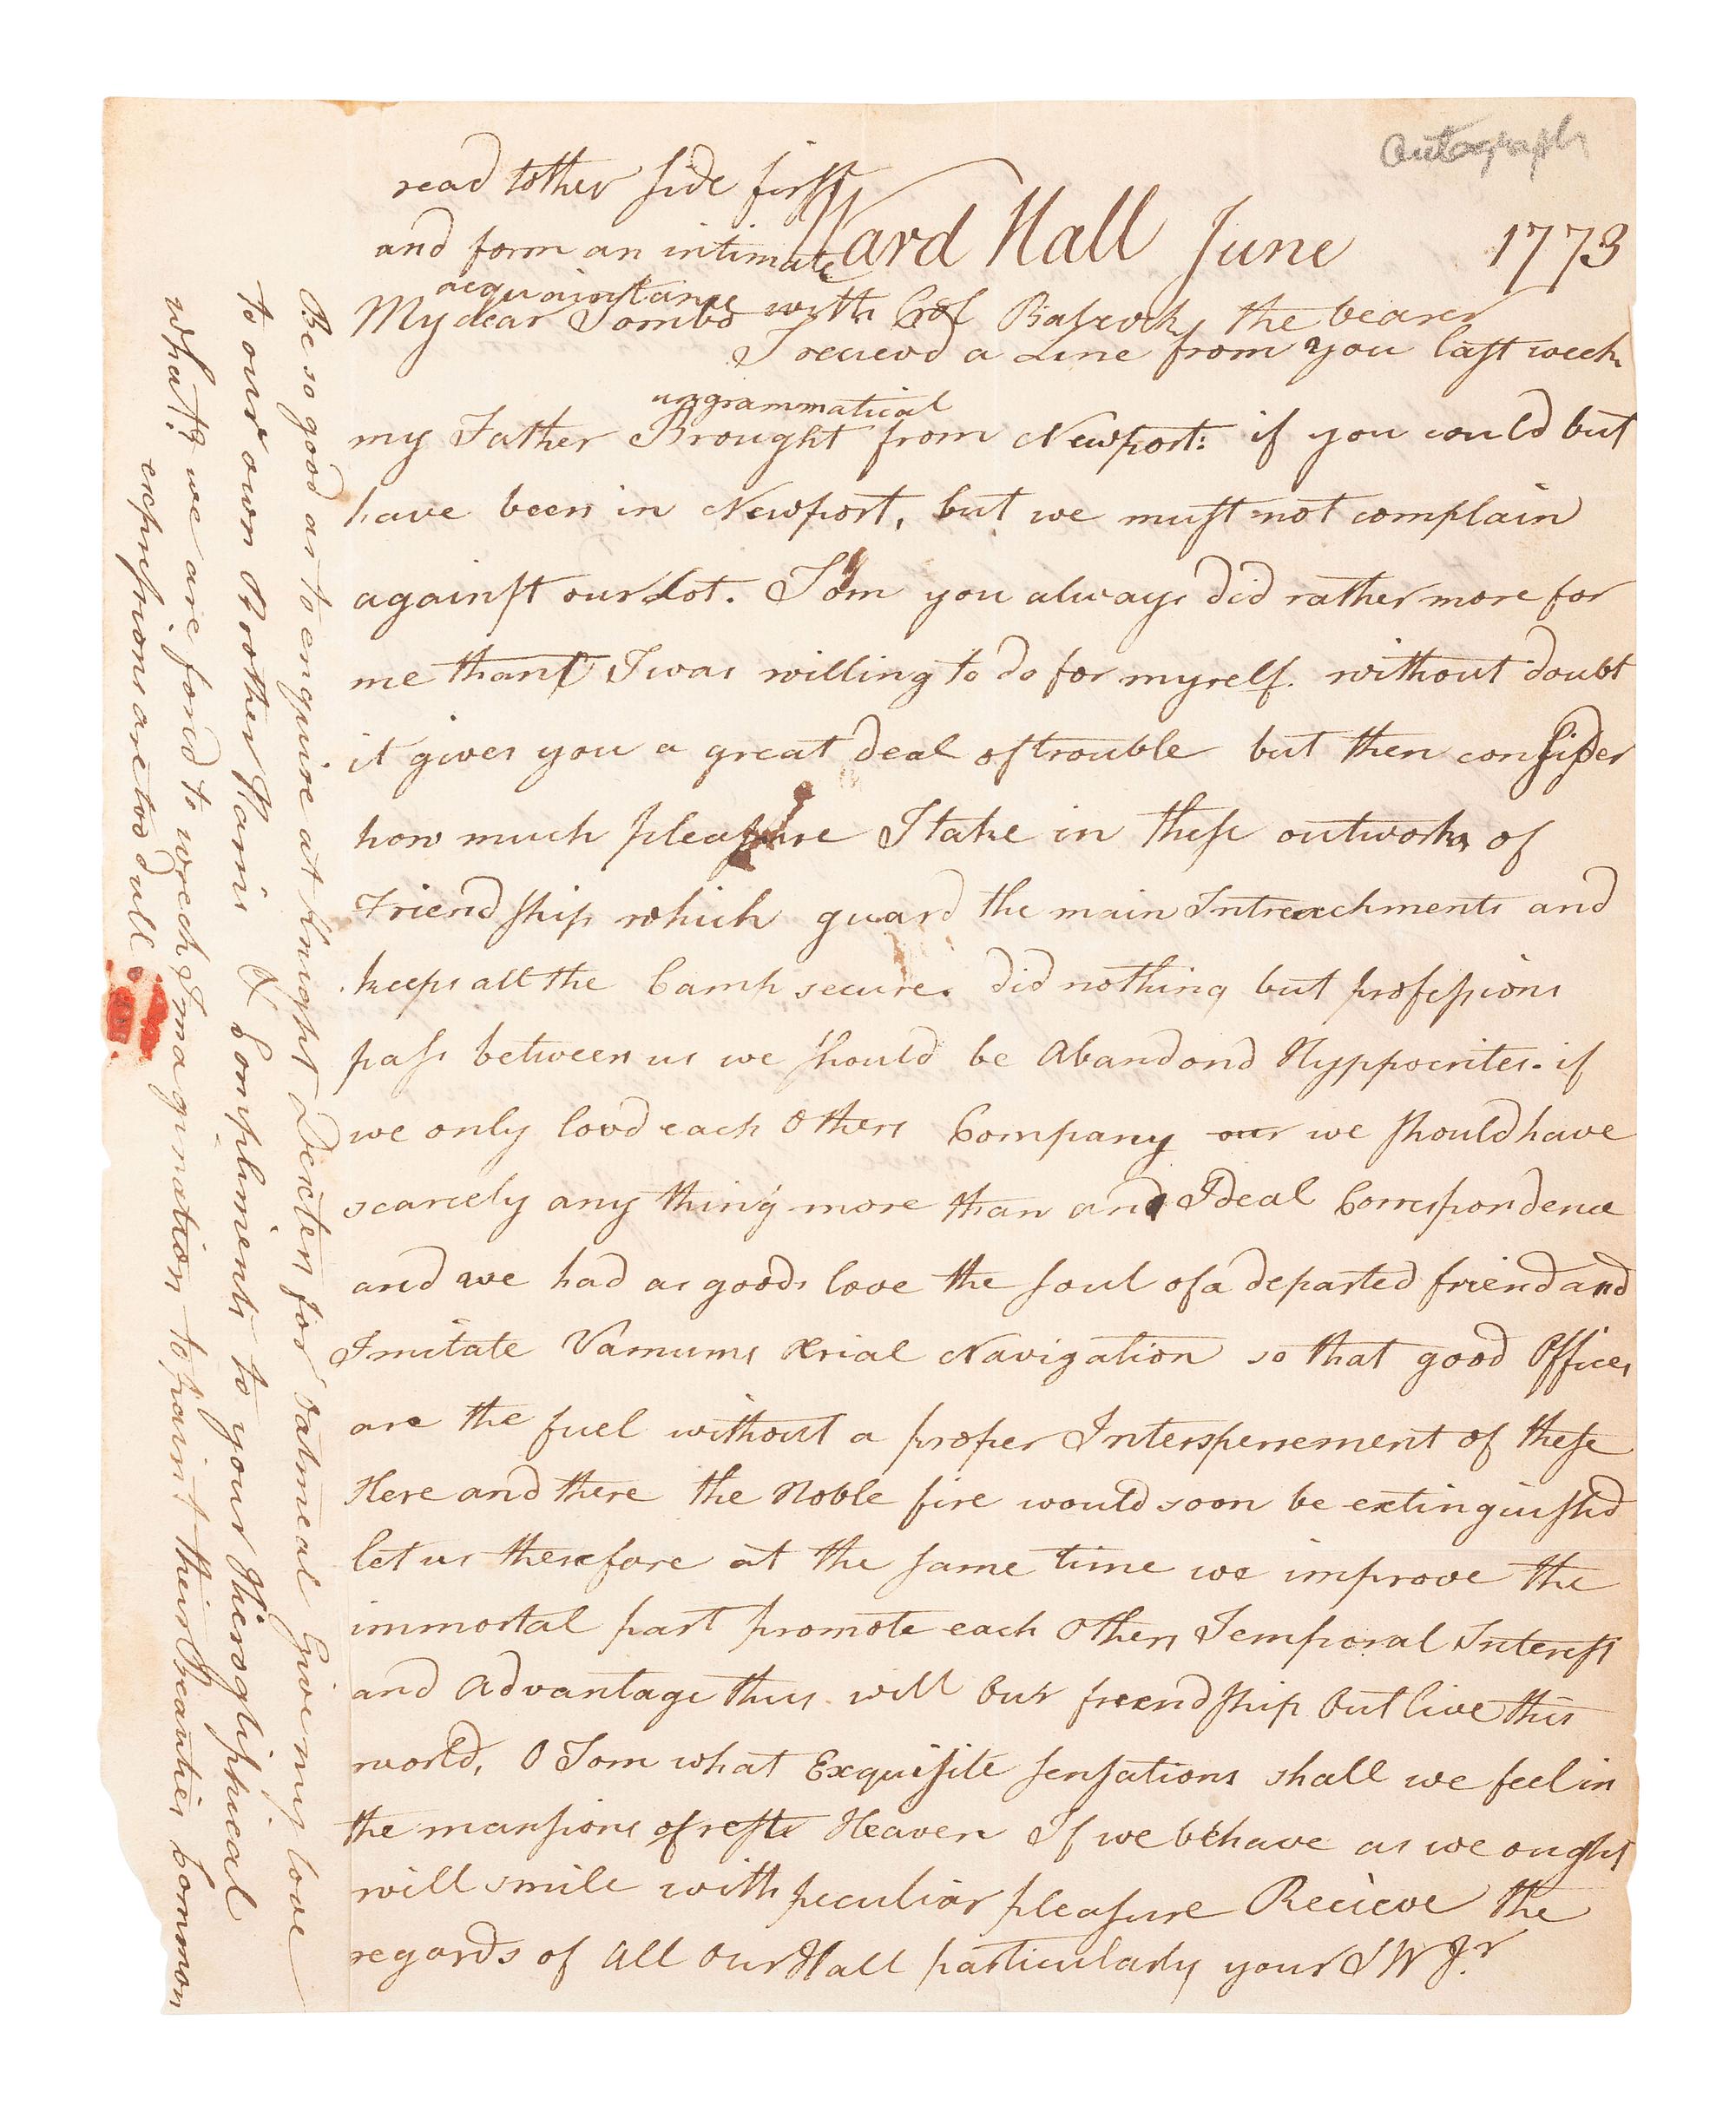 Autograph
read tother side first
Ward Hall June 1773
and form an intimate
acquaintance with Col Babcock the bearer
My dear Tombo
I recievd a Line from you last week
ungrammatical
my Father Brought from Newport: if you could but
have been in Newport, but we must not complain
against our Lot. Tom you always did rather more for
me than I was willing to do for myself. without doubt
it gives you a great deal of trouble but then consider
how much pleasure I take in these outworks of
Friendship which guard the main Intrenchments and
keeps all the Camp secure. did nothing but professions
pass between us we should be Abandond Hyppocrites. if
we only lovd each Others Company our we should have
scarcely any thing more than an Ideal Correspondence
and we had as goods love the soul of a departed friend and
Imitate Varnums Ærial Navigation so that good Offices
are the fuel without a proper Interspersement of these
Here and there the Noble fire would soon be extinguishd
let us therefore at the same time we improve the
immortal part promote each Others Temporal Interest
and Advantage thus will Our freendship Out live this
world, O Tom what Exquisite sensations shall we feel in
the mansions of rest Heaven If we behave as we ought
will smile with peculiar pleasure Recieve the
regards of All Our Hall particularly your S W Jr.
Be so good as to enquire at Knight Dexters for Oatmeal Give my love
to our own Brother Harris & Compliments to your Hierogliphical
what!? we are forcd to wreck Imagination to paint their Beauties Common
expressions are too dull